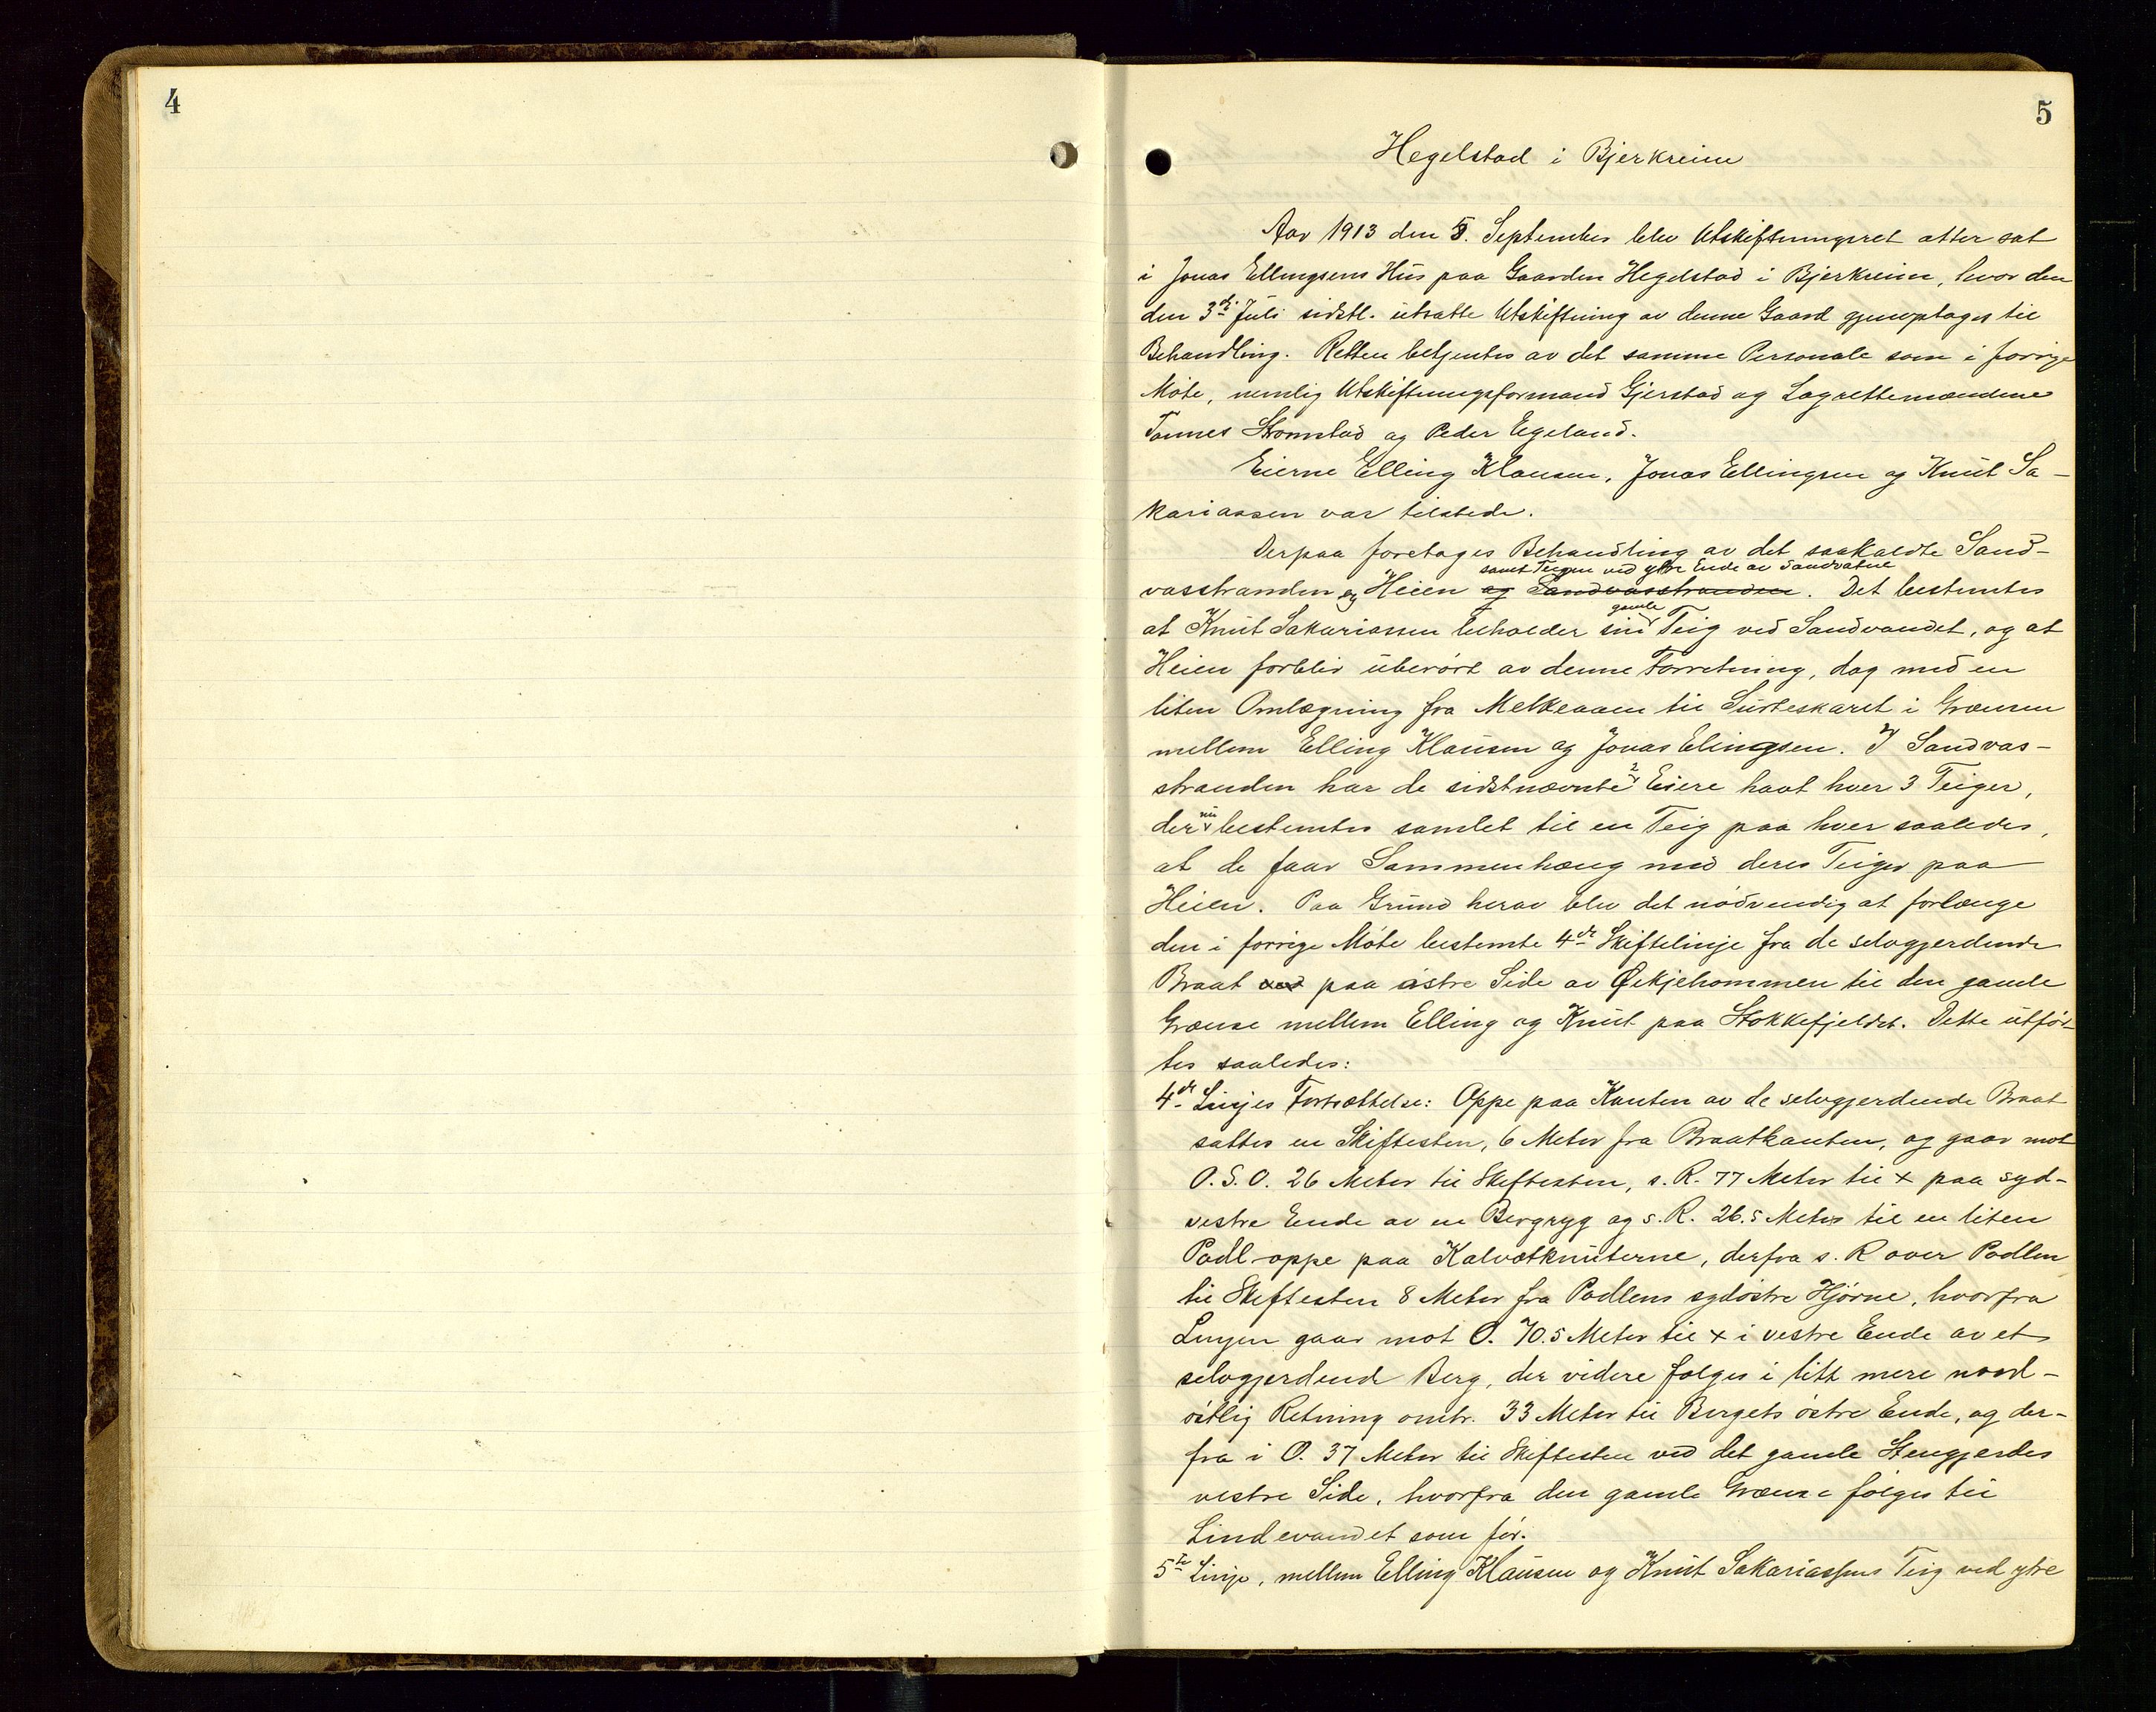 4
5
Hegelstad i Bjerkreim
Aar 1913 den 5. September blev Utskiftningsret atter sat
i Jonas Ellingsens Hus paa Gaarden Hegelstad i Bjerkreim, hvor den
den 3dje Juli sidstl. utsatte Utskiftning av denne Gaard gjenoptages til
Behandling. Retten betjentes av det samme Personale som i forrige
Møte, nemlig Utskiftningsformand Gjerstad og Lagrettemændene
Tønnes Skomstad og Peder Egeland.
Eierne Elling Klausen, Jonas Ellingsen og Knut Sa-
kariassen var tilstede.
Derpaa foretages Behandling av det saakaldte Sand-
samt Teigen ved ytre Ende av Sandvatne
vasstranden og Heien og Sandvasstranden. Det bestemtes
gamle
at Knut Sakariassen beholder sin Teig ved Sandvandet, og at
Heien forblir uberørt av denne Forretning, dog med en
liten Omlægning fra Melkeaaen til Surteskaret i Grænsen
mellem Elling Klausen og Jonas Elingsen. I Sandvas-
stranden har de sidstnævnte 2 Eiere havt hver 3 Teiger,
der nu bestemtes samlet til en Teig paa hver saaledes,
at de faar Sammenhæng med deres Teiger paa
Heien. Paa Grund herav blev det nødvendig at forlænge
den i forrige Møte bestemte 4de Skiftelinje fra de selvgjerdende
Braat ved paa østre Side av Øskjehommen til den gamle
Grænse mellem Elling og Knut paa Stokkefjeldet. Dette utfør-
tes saaledes:
4de Linjes Fortsættelse: Oppe paa Kanten av de selvgjerdende Braat
sattes en Skiftesten, 6 Meter fra Braatkanten, og gaar mot
O.S.O. 26 Meter til Skiftesten, s. R. 77 Meter til x paa syd-
vestre Ende av en Bergryg og s. R. 26.5 Meter til en liten
Padl oppe paa Kalvatknuterne, derfra s. R over Padlen
til Skiftesten 8 Meter fra Padlens sydøstre Hjørne, hvorfra
Linjen gaar mot O. 70.5 Meter til x i vestre Ende av et
selvgjerdende Berg, der videre følges i litt mere nord-
østlig Retning omtr. 33 Meter til Bergets østre Ende, og der-
fra i O. 37 Meter til Skiftesten ved det gamle Stengjerdes
vestre Side, hvorfra den gamle Grænse følges til
Lindevandet som før.
5te Linje, mellem Elling Klausen og Knut Sakariassens Teig ved ytre